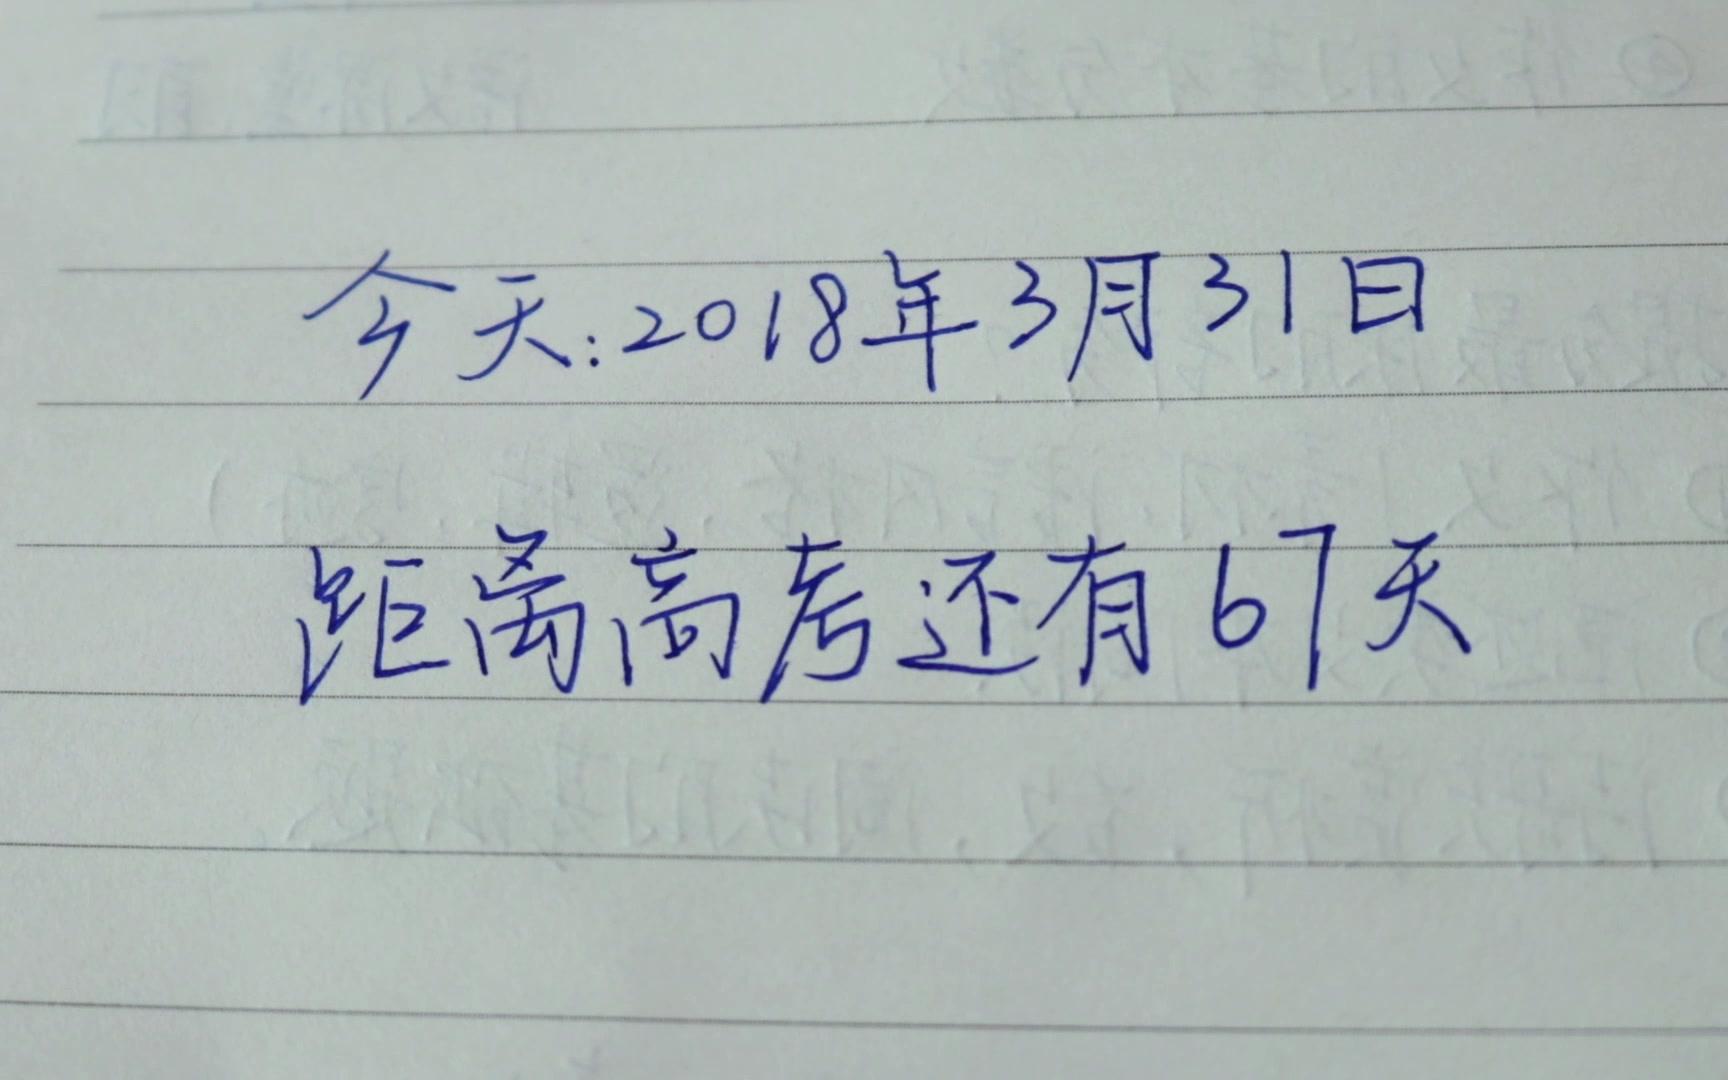 今天:2018年3月31日
距离高考还有67天